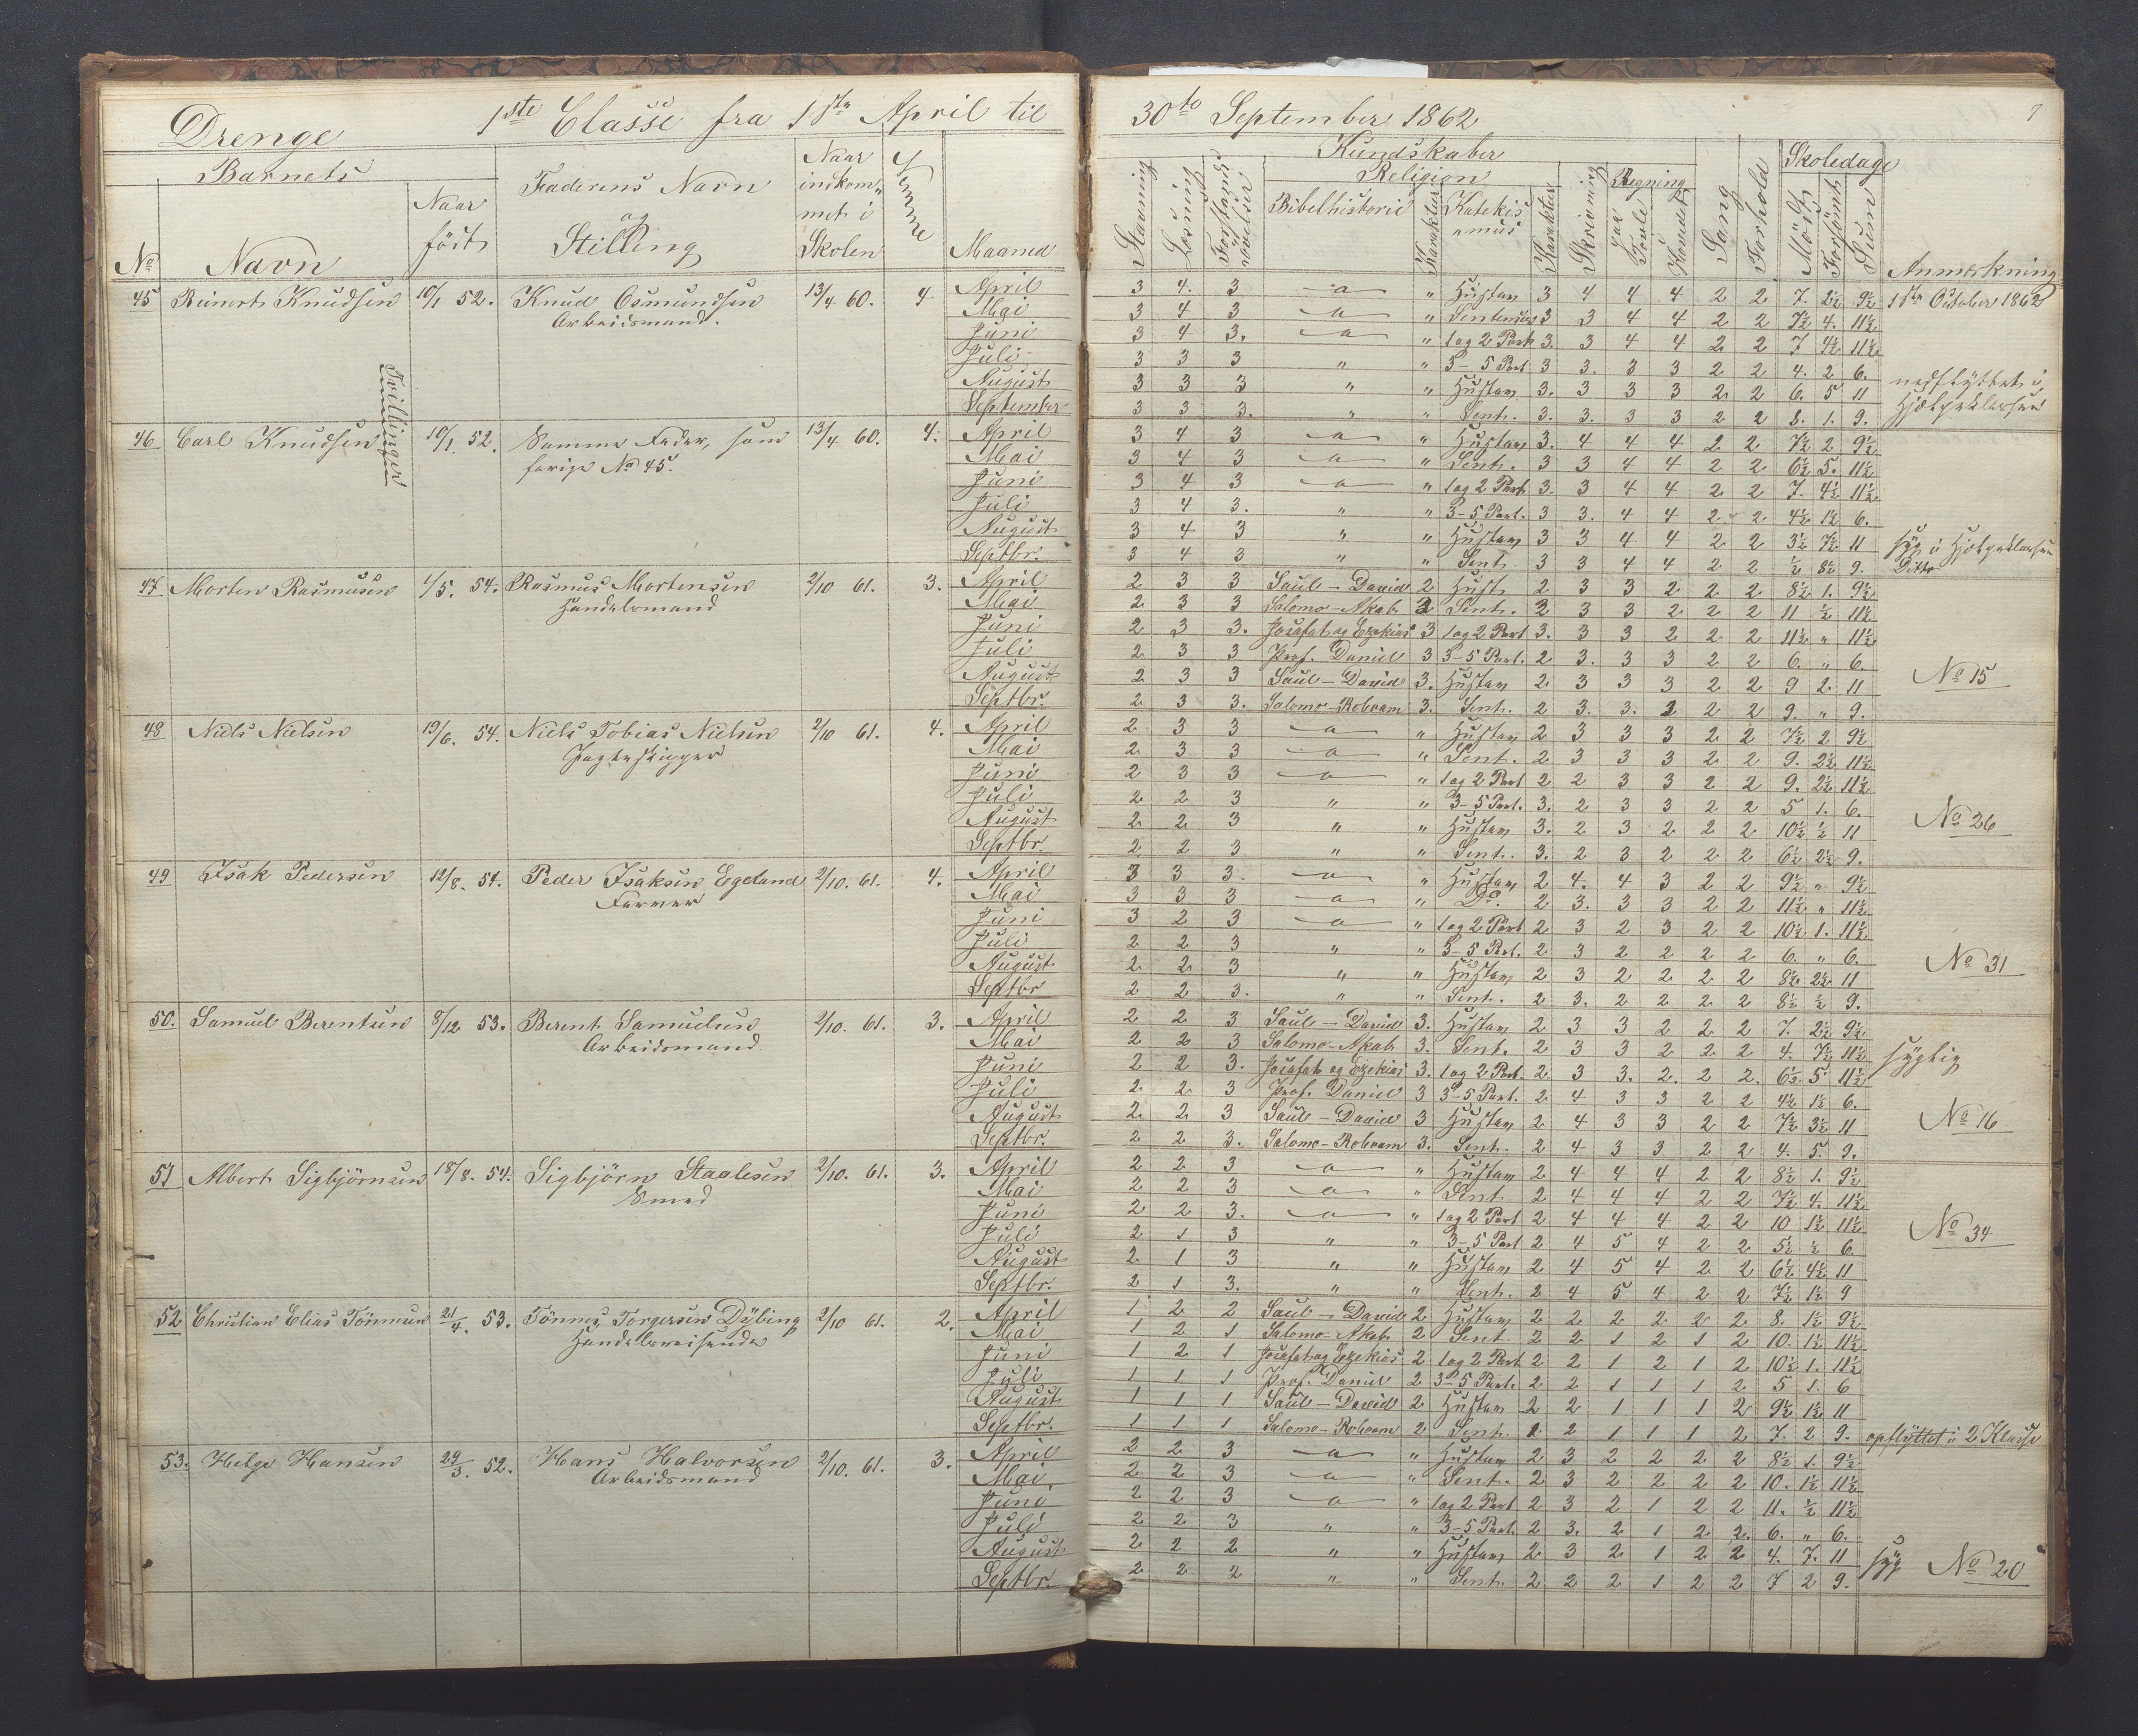 Drenge 1ste Classe fra 1ste April til 30te September 1862
7
Barnets
Faderens Navn og Stilling
Naar indkommet i Skolen
Evne
Maaned
No
Navn
Naar født
Kundskaber
Stavning
Læsning
Forstandsøvelser
Religion
Bibelhistorie
Karakter
Katekismus
Karakter
Skrivning
Regning
paa Tavle
Hovedet
Sang
Forhold
Skoledage
Mødt
Forsømt
Sum
Anmærkning
1ste October 1862
45 Reinert Knudsen 10/1 52. Knud Osmundsen Arbeidsmand. 13/4 60. 4
Tvillinger
April 3 4. 3 " Hustav 3 4 4 4 2 2 7. 2½ 9½
Mai 3 4 3 " Sentenser 3 3 4 4 2 2 7½ 4. 11½
Juni 3 4 3. " 1 og 2 Part 3. 3 4 4 2 2 7 4½ 11½
Juli 3 3 3 " " 3-5 Part 3 3. 3 3 2 2 4. 2 6.
August 3 3 3 " " Hustav 3. 3 3 3 2 2 6. 5 11 nedflyttet i
September 3 3 3. " " Sent. 3. 3. 3 3 2 2 8. 1. 9. Hjælpeklassen
46 Carl Knudsen 10/1. 52. Samme Fader, som forige No 45. 13/4 60. 4.
April 3 4 3 " Hustav 3. 4 4 4 2 2 7½ 2 9½
Mai 3 4 3 " Sent. 3 3 4 4 2 2 6½ 5. 11½
Juni 3 4 3 " 1 og 2 Part 3. 3 4 4 2 2 7. 4½ 11½
Juli 3 4 3. " " 3-5 Part. 3 3. 4 4 2 2 4½ 1½ 6.
August 3 4 3 " " Hustav 3 3 4 4 2 2 3½ 7½ 11 syg i Hjælpeklassen
Septbr. 3 4 3 " " Sent. 3 3 4 4 2 2 ½ 8½ 9. Ditto
47 Morten Rasmusen 1/5. 54. Rasmus Mortensen Handelsmand 2/10 61. 3.
April 2 3 3 Saul - David 2 Hust. 2 3 3 2 2 2 8½ 1. 9½
Mai 2 3 3 Salomo-Akab 3 Sent. 3 3 3 2 2 2 11 ½ 11½
Juni 2 3 3. Josafat og Ezekias 3 1 og 2 Part 3. 3 3 2 2 2 11½ " 11½
Juli 2 3 3 Prof. Daniel 3 3-5 Part. 2 3. 3 3 2 2 6. " 6.
August 2 3 3 Saul - David 3. Hustav 2 3 3 3 2 2 9 2. 11 No 15
Septbr. 2 3 3. Salomo-Roboam 3. Sent. 2 3. 3. 2 2 2 9. " 9.
48 Niels Nielsen 19/6. 54. Niels Tobias Nielsen Jagteskipper 2/10 61. 4.
April 2 3 3 " Hustav 2 3 3 3 2 2 7½ 2 9½
Mai 2 3 3 " Sent. 2 3 3 3 2 2 9. 2½ 11½
Juni 2 3 3 " 1 og 2 Part 2 2 3 3 2 2 9. 2½ 11½
Juli 2 2 3 " " 3-5 Part. 3. 2 3 3 2 2 5 1. 6.
August 2 2 3 " " Hustav 3. 2 3 2 2 2 10½ ½ 11 No 26
Septbr. 2 2 3 " " Sent. 3. 2 3 2 2 2 6½ 2½ 9.
49 Isak Pedersen 12/8. 54. Peder Isaksen Egeland Farver 2/10. 61. 4.
April 3 3 3. " Hustav 2 4. 4 3 2 2 9½ " 9½
Mai 3 3 3 " Do. 2 3. 3 3 2 2 11½ " 11½
Juni 3 2 3 " 1 og 2 Part 2 3 2 3 2 2 10½ 1. 11½
Juli 2 2 3 " " 3-5 Part. 2 3 2 2 2 2 6. " 6.
August 2 2 3 " " Hustav 2 3 2 2 2 2 8½ 2½ 11 No 31
Septbr 2 2 3. " " Sent. 2 3. 2 2 2 2 8½ ½ 9.
50. Samuel Berentsen 8/12 53. Berent Samuelsen Arbeidsmand 2/10. 61. 3.
April 2 2 3 Saul - David 3. Hustav 2 3 3 2 2 2 7. 2½ 9½
Mai 2 2 3 Salomo-Akab 3. Sent. 2 3 3 2 2 2 4. 7½ 11½ syglig
Juni 2 2 3. Josafat og Ezekias 3. 1 og 2 Part. 2 3 3. 2. 2 2. 6½ 5 11½
Juli 2 2 3 Prof. Daniel 3 3-5 Part. 2 4 3 3 2 2 4½ 1½ 6.
August 2 2 3 Saul - David 3 Hustav 2 4 3 3 2 2 7½ 3½ 11 No 16
Septbr. 2 2 3. Salomo-Roboam 3. Sent. 2 4 3 3 2 2 4. 5. 9.
51 Albert Sigbjörnsen 18/8. 54. Sigbjörn Staalesen Smed 2/10. 61. 3.
April 2 2 3 " Hustav 2 4 4 4 2 2 8½ 1. 9½
Mai 2 2 3 " Sent. 2 4 4 4 2 2 7½ 4. 11½
Juni 2 2 3. " 1 og 2 Part 2 4 4 4 2 2 10 1½ 11½
Juli 2 1 3 " " 3-5 Part 2 4 5 4 2 2 5½ ½ 6. No 34
August 2 1 3 " " Hustav 2 4 5 4 2 2 6½ 4½ 11
Septbr. 2 1 3. " " Sent. 2 4 5 4 2 2 7½ 1½ 9
52 Christian Elias Tönnesen 21/4. 53. Tönnes Torgersen Dÿbing Handelsreisende 2/10 61. 2.
April 1 2 2 Saul - David 2 Hustav 2 2 2 2 2 2 8. 1½ 9½
Mai 1 2 1 Salomo-Akab 2 Sent. 2 2 1 2 1 2 10. 1½ 11½
Juni 1 2 1 Josafat og Ezekias 2 1 og 2 Part 2 2 1 2 1 2 10½ 1. 11½
Juli 1 1 1 Prof. Daniel 2 3-5 Part. 2 2 1 1 1 2 5 1. 6
August 1 1 1 Saul - David 2 Hustav 2 2 1 1 1 2 9½ 1½ 11
Septbr. 1 1 1 Salomo-Roboam 2 Sent. 2 2 1 1 1 2 7. 2 9. opflyttet i 2 Klasse
53. Helge Hansen 29/3. 52. Hans Halvorsen Arbeidsmand 2/10. 61. 3.
April 2 2 3 " Hustav 2 3 2 2 2 2 8½ 1. 9½
Mai 2 2 3 " Sent. 2 3 2 2 2 2 10. 1½ 11½
Juni 2 2 3 " 1 og 2 Part 2 3 2 1 2 2 11. ½ 11½
Juli 2 2 3 " " 3-5 Part. 2 3. 2 1 2 2. 6. " 6.
August 2 2 2 " " Hustav 2 3 2 1 2 2 4. 7. 11 syg No 20
Septbr. 2 2 2 " " Sent. 2 2 2 1 2 2 7 2 9.